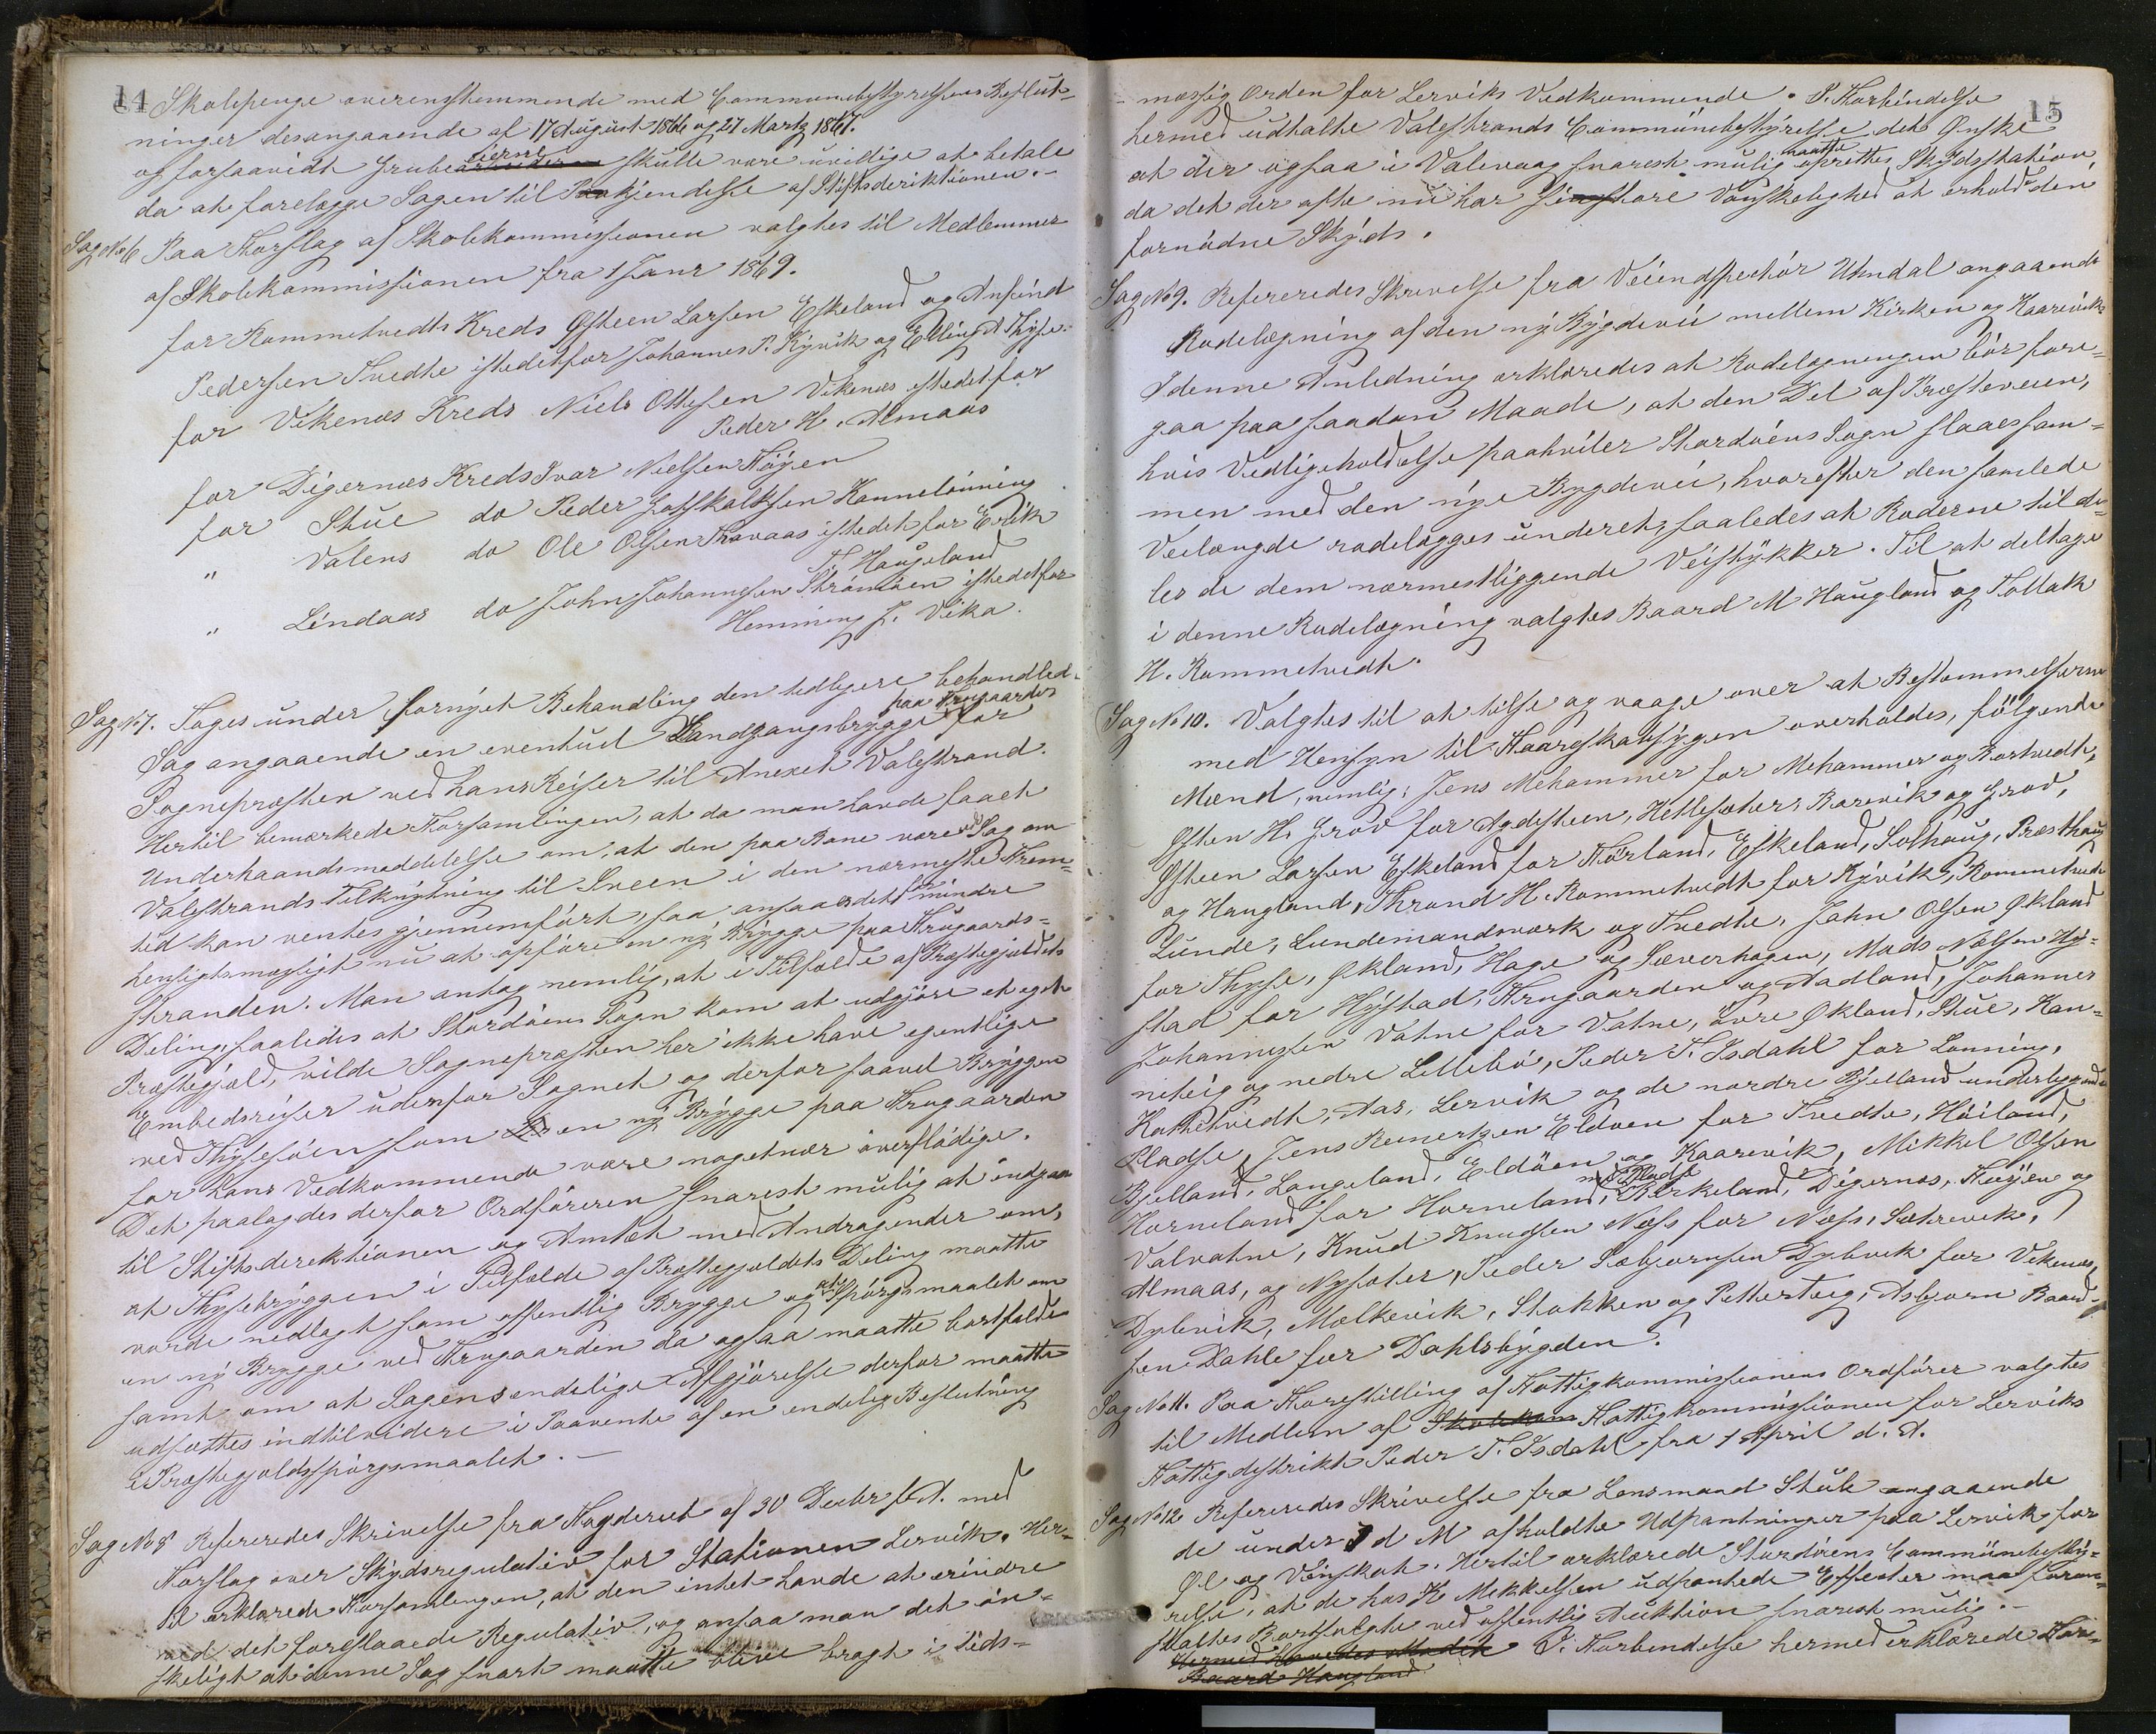 14
Skolepenge overensstemmende med Communebestyrelsens Beslut-
ninger desangaaende af 17 August 1866 og 27 Martz 1867.
og forsaavidt Grubeeierne skulle være uvillige at betale
da at forelægge Sagen til Paakjendelse af Stiftsdirektionen.-
Sag No 6 Paa Forslag af Skolekommissionen valgtes til Medlemmer
af Skolekommissionen fra 1 Janr 1869.
for Rommetvedts Kreds Østeen Larsen Eskeland og Anfind
Pedersen Tvedte istedetfor Johannes P. Kyvik og Elling A Thyse.
for Vikenæs Kreds Niels Ottesen Vikenæs istedetfor
Peder H. Almaas
for Digernæs Kreds Ivar Nielsen Høyen
for Stue do Peder Gotskalksen Kanneløning
" Valens do Ole Olsen Hovaas istedet for Erik
T. Haugeland
" Lindaas do John Johannessen Strømøen istedetfor
Hemming J. Vika.
Sag No 7. Toges under fornyet Behandling den tidligere behandlede
Sag angaaende en eventuel Landgangsbrygge paa Krugaarden for
Sognepræsten ved hans Reiser til Anexet Valestrand.
Hertil bemærkede Forsamlingen, at da man havde faaet
Underhaandsmeddelelse om, at den paa Bane værende Sag om
Valestrands Tilknytning til Sveen i den nærmeste Frem-
tid kan ventes gjennemført, saa ansaaes det for mindre
hensigtsmæssigt nu at opføre en ny Brygge paa Krugaards-
stranden. Man antog nemlig, at i Tilfælde af Præstegjældets
Deling saaledes at Stordøens Sogn kom at udgjøre et eget
Præstegjæld, vilde Sognepræsten her ikke have egentlige
Embedsreiser udenfor Sognet og derfor saavel Bryggen
ved Thysesøen som en ny Brygge paa Krugaarden
for hans Vedkommende være nogetnær overflødige.
Det paalagdes derfor Ordføreren snarest mulig at indgaa
til Stiftsdirektionen og Amtet med Andragender om,
at Thysebryggen i Tilfælde af Præstegjældets Deling maatte
vorde nedlagt som offentlig Brygge og at Spørgsmaalet om
en ny Brygge ved Krugaarden da ogsaa maatte bortfalde
samt om at Sagens endelige Afgjørelse derfor maatte
udsættes indtil videre i Paavente af en endelig Beslutning
i Præstegjældsspørgsmaalet.-
Sag No 8 Refereredes Skrivelse fra Fogderiet af 30 Decbr f. A. med
Forslag over Skydsregulativ for Stationen Lervik. Her-
til erklærede Forsamlingen, at den intet havde at erindre
ved det foreslaaede Regulativ, og ansaa man det øn-
skeligt at denne Sag snart maatte blive bragt i lids-
15
mæssig Orden for Lerviks Vedkommende. I Forbindelse
hermed udtalte Valestrands Communebestyrelse det Ønske
at der ogsaa i Valevaag snarest mulig maatte oprettes Skydsstation,
da det der ofte nu har store Vanskelighed at erholde den
fornødne Skyds.
Sag No 9. Refereredes Skrivelse fra Veiindspectør Undal angaaende
Rodelægning af den ny Bygdevei mellem Kirken og Kaarevik.
I denne Anledning erklæredes at Rodelægningen bør fore-
gaa paa saadan Maade, at den Del af Præsteveien,
hvis Vedligeholdelse paahviler Stordøens Sogn slaaes sam-
men med den nye Bygdevei, hvorefter den samlede
Veilængde rodelægges underet, saaledes at Roderne tilde-
les de dem nærmestliggende Veistykker. Til at deltage
i denne Rodelægning valgtes Baard M Haugland og Tollak
H. Rommetvedt.
Sag No 10. Valgtes til at tilse og vaage over at Bestemmelserne
med Hensyn til Faareskabsygen overholdes, følgende
Mænd, nemlig: Jens Mehammer for Mehammer og Bortvedt,
Østen H. Grov for Agdesteen, Hetlesæter, Barevik og Grov,
Østeen Larsen Eskeland for Førland, Eskeland, Solhaug, Præsthaug
og Haugland, Thrond H. Rommetvedt for Kyvik, Rommetvedt
Lunde, Lundemandsværk og Tvedte, John Olsen Økland
for Thyse, Økland, Hage og Sæverhagen, Mads Nilsen Hy-
stad for Hystad, Krugaarden og Aadland, Johannes
Johannessen Vatne for Vatne, øvre Økland, Stue, Kan-
neteig og nedre Litlebø, Peder T. Isdahl for Lønning,
Hattetvedt, Aas, Lervik og de nordre Bjelland underliggende
Pladse, Jens Reinertsen Eldøen for Tvedte, Høiland,
Bjelland, Langeland, Eldøen og Kaarevik, Mikkel Olsen
Horneland for Horneland, med Pladse Kirkeland, Digernæs, Høyen og
Valvatne, Knud Knudsen Næss for Næss, Sætrevik,
Almaas, og Nysæter, Peder Sæbjørnsen Dybvik for Vikenæs,
Dybvik, Mælkevik, Stokken og Petterteig, Asbjørn Baard-
sen Dahle for Dahlsbygden.
Sag No 11. Paa Forestilling af Fattigkommissionens Ordfører valgtes
til Medlem af Skolekom Fattigkommissionen for Lerviks
Fattigdistrikt Peder T. Isdahl fra 1 April d. A.
Sag No 12 Refereredes Skrivelse fra Lensmand Stube angaaende
de under d M afholdte Udpantninger paa Lervik for
Øl og Vinskat. Hertil erklærede Stordøens Communebesty-
relse, at de hos K Mikkelsen udpantede Effecter maa foran-
staltes Bortsolgte ved offentlig Auktion snarest mulig.-
Hermed hævedes Mødet I Forbindelse hermed erklærede Fore-
Baard Haugland